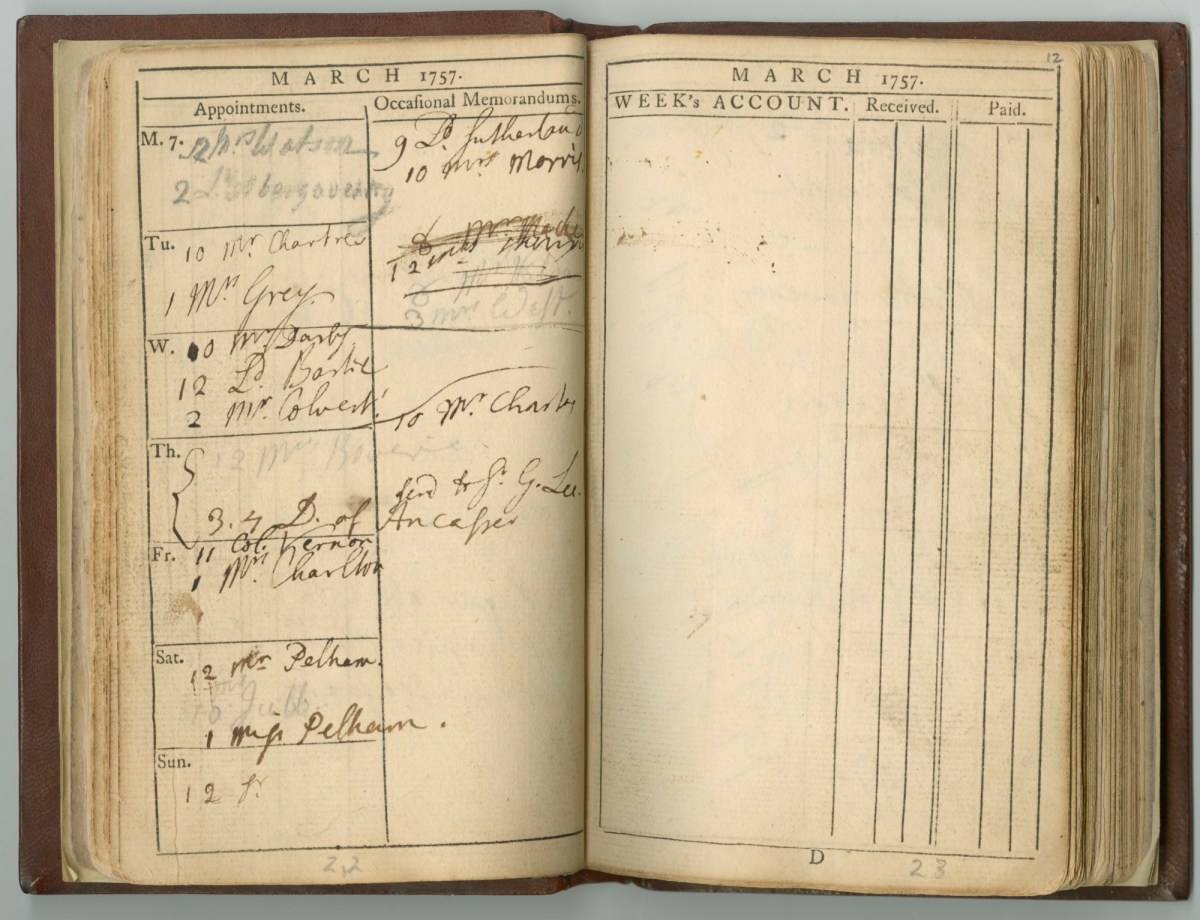 MARCH 1757.
Appointments.
Occasional Memorandums.
M. 7. 12 Mrs Watson
2 Ld Abergavenny
9 Ld Sutherland
10 Mrs Morris
Tu. 10 Mr. Chartres
1 Mrs Grey.
8 Mr.
12
8
3 Mrs West.
W. 10 Mr Darby
12 Ld.
2 Mr. Colvert
10 Mr. Chartres
Th. 12 Mrs Boverie
3. 4 D. of Ancaster
send to Sr. G. Lee.
Fr. 11 Col. Vernon
1 Mrs. Charlton
Sat. 12 Mr Pelham.
10 Jubb
1 Miss Pelham.
Sun.
12 Sr
22
12
MARCH 1757.
WEEK's ACCOUNT. Received. Paid.
D
23